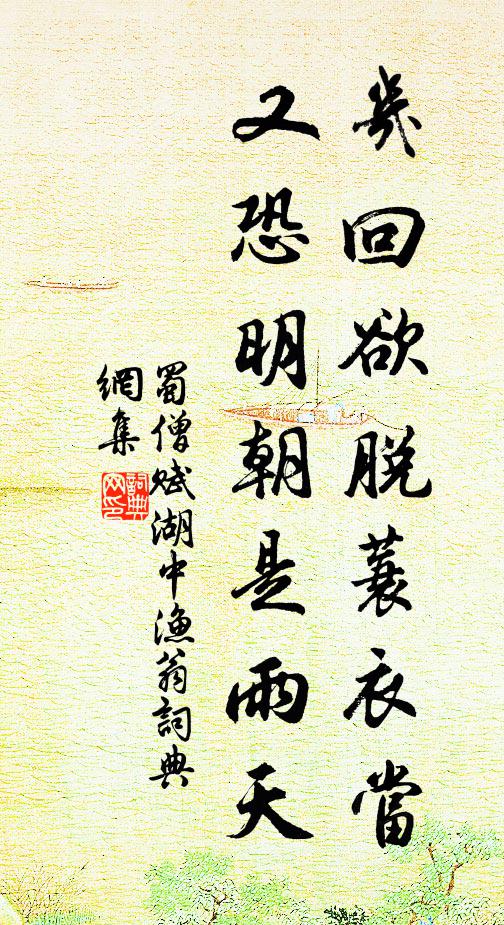 幾回欲脱蓑衣當
又恐明朝是雨天
蜀僧賦湖中漁翁詞典
網集
詞典
网印